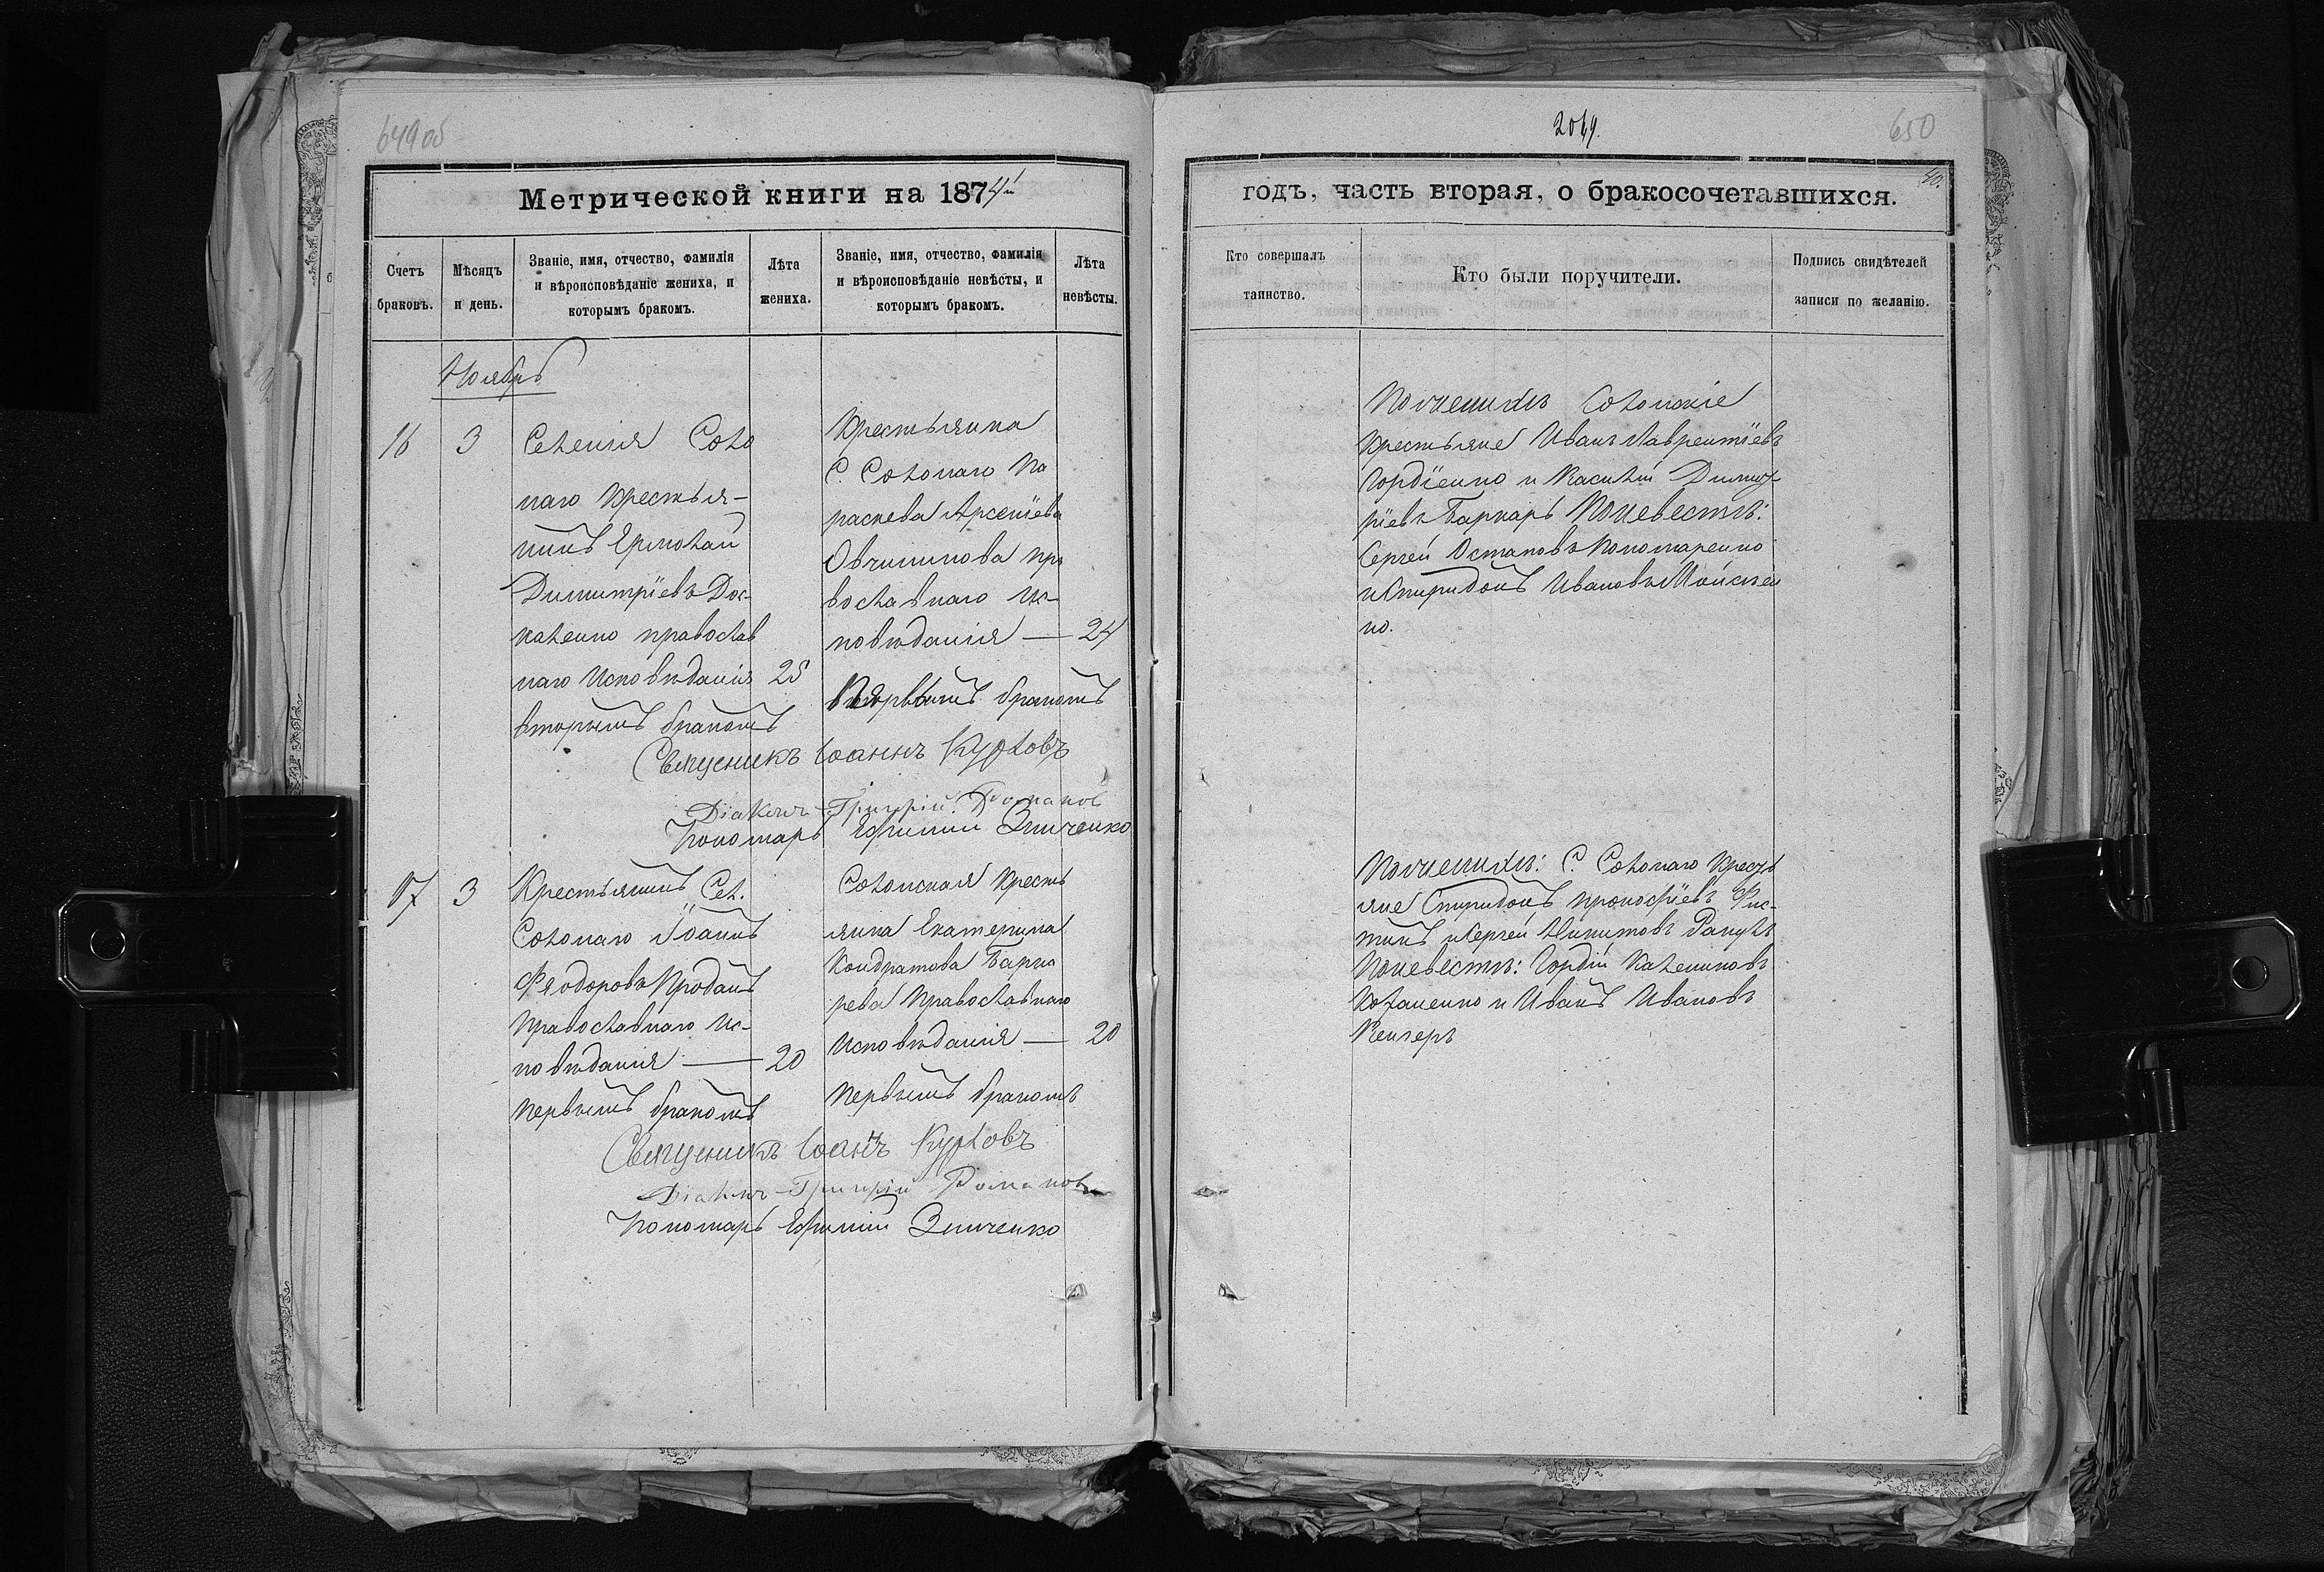 649об
Метрической книги на 1874й
Счетъ браковъ.
Мѣсяцъ и день.
Званіе, имя, отчество, фамилія
и вѣроисповѣданіе жениха, и
которымъ бракомъ.
Лѣта жениха.
Званіе, имя, отчество, фамилія
и вѣроисповѣданіе невѣсты, и
которымъ бракомъ.
Лѣта невѣсты.
Ноябрь
16 3
Селенія Соло
наго Крестья-
нинъ Ермолай
Димитріевъ Дос-
каленко православ
наго Исповѣданія 25
вторымъ бракомъ
Крестьянка
С. Солонаго Па
раскева Арсеніева
Овчиникова пра
вославнаго Ис-
повѣданія — 24
Первымъ бракомъ
Священникъ Іоаннъ Курловъ
Діаконъ Григорій Романов
Пономарь Ефимій Зинченко
17 3
Крестьянинъ Сел.
Солонаго Іоаннъ
Феодоровъ Проданъ
Православнаго Ис-
повѣданія — 20
первымъ бракомъ
Солонская Кресть
янка Екатерина
Кондратова Барка
рева Православнаго
Исповѣданія — 20
Первымъ бракомъ
Священникъ Іоаннъ Курловъ
Діаконъ Григорій Романов
Пономарь Ефимій Зинченко
2049.
650
40.
годъ, часть вторая, о бракосочетавшихся.
Кто совершалъ
таинство.
Кто были поручители.
Подпись свидѣтелей
записи по желанію.
По женихѣ Солонскіе
крестьяне Иванъ Лаврентіевъ
Гордіенко и Василій Димит-
ріевъ Баркарь По невестѣ:
Сергей Остаповъ Пономаренко
и Спиридонъ Ивановъ Мойсеен
ко.
По женихѣ: С. Солонаго Кресть
яне Спиридонъ Прокофіевъ
и Сергей Никитовъ
По невестѣ: Гордій Калениковъ
и Иванъ Ивановъ